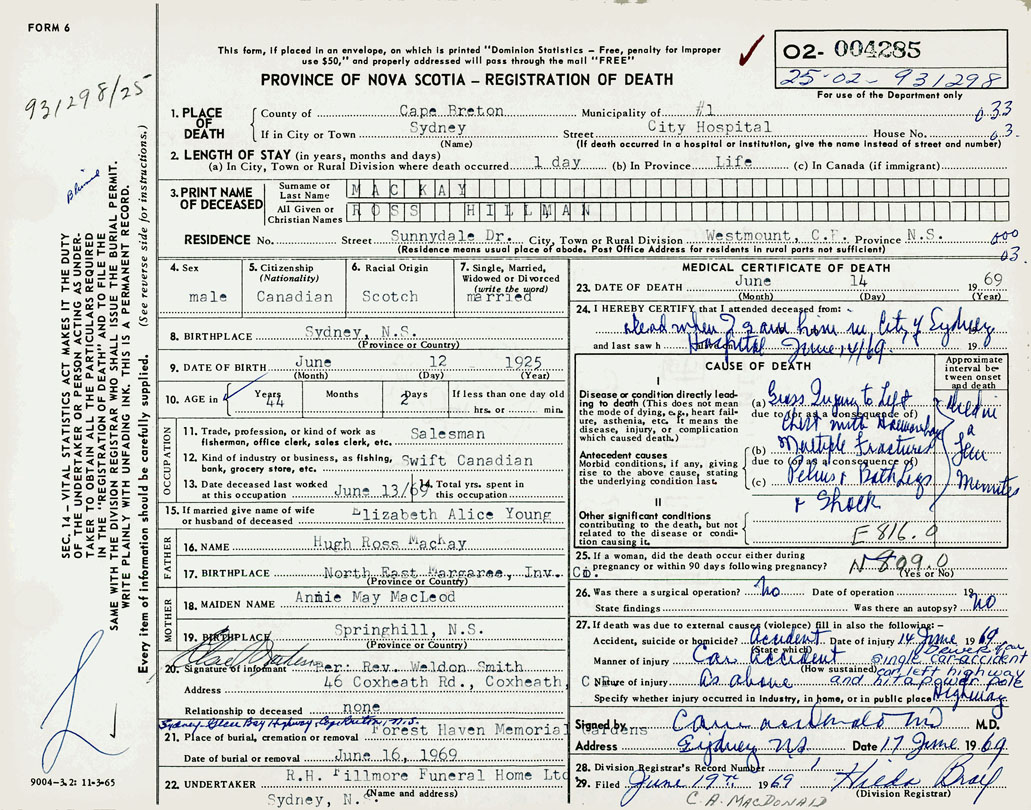 FORM 6
This form, if placed in an envelope, on which is printed "Dominion Statistics — Free, penalty for improper
use $50," and properly addressed will pass through the mail "FREE"
PROVINCE OF NOVA SCOTIA — REGISTRATION OF DEATH
O2- 004285
25-02-931298
For use of the Department only
931298/25
1. PLACE OF DEATH
County of Cape Breton Municipality of #1 033
If in City or Town Sydney Street City Hospital House No. 03.
(Name) (If death occurred in a hospital or institution, give the name instead of street and number)
2. LENGTH OF STAY (in years, months and days)
(a) In City, Town or Rural Division where death occurred 1 day (b) In Province Life (c) In Canada (if immigrant)
3. PRINT NAME OF DECEASED
Surname or Last Name MACKAY
All Given or Christian Names ROSS HILLMAN
RESIDENCE No. Street Sunnydale Dr. City, Town or Rural Division Westmount, C.B. Province N.S. 000
(Residence means usual place of abode. Post Office Address for residents in rural parts not sufficient) 03.
SEC. 14 — VITAL STATISTICS ACT MAKES IT THE DUTY
OF THE UNDERTAKER OR PERSON ACTING AS UNDER-
TAKER TO OBTAIN ALL THE PARTICULARS REQUIRED
IN THE "REGISTRATION OF DEATH" AND TO FILE THE
SAME WITH THE DIVISION REGISTRAR WHO SHALL ISSUE THE BURIAL PERMIT.
WRITE PLAINLY WITH UNFADING INK. THIS IS A PERMANENT RECORD.
Every item of information should be carefully supplied. (See reverse side for instructions.)
4. Sex male
5. Citizenship (Nationality) Canadian
6. Racial Origin Scotch
7. Single, Married, Widowed or Divorced (write the word) married
8. BIRTHPLACE Sydney, N.S.
(Province or Country)
9. DATE OF BIRTH June 12 1925
(Month) (Day) (Year)
10. AGE in Years 44 Months Days 2 If less than one day old hrs. or min.
OCCUPATION
11. Trade, profession, or kind of work as fisherman, office clerk, sales clerk, etc. Salesman
12. Kind of industry or business, as fishing, bank, grocery store, etc. Swift Canadian
13. Date deceased last worked at this occupation June 13/69
14. Total yrs. spent in this occupation
15. If married give name of wife or husband of deceased Elizabeth Alice Young
FATHER
16. NAME Hugh Ross MacKay
17. BIRTHPLACE North East Margaree, Inv. Co.
(Province or Country)
MOTHER
18. MAIDEN NAME Annie May MacLeod
19. BIRTHPLACE Springhill, N.S.
(Province or Country)
20. Signature of informant per: Rev. Weldon Smith
Address 46 Coxheath Rd., Coxheath, C.B.
Relationship to deceased none
Sydney-Glace Bay Highway, Cape Breton, N.S.
21. Place of burial, cremation or removal Forest Haven Memorial Gardens
Date of burial or removal June 16, 1969
22. UNDERTAKER R.H. Fillmore Funeral Home Ltd
(Name and address)
Sydney, N.S.
9004-3.2: 11-3-65
MEDICAL CERTIFICATE OF DEATH
23. DATE OF DEATH June 14 1969
(Month) (Day) (Year)
24. I HEREBY CERTIFY that I attended deceased from:
dead when I saw him in City of Sydney
and last saw h Hospital June 14/69. 19
CAUSE OF DEATH
Approximate interval between onset and death
I
Disease or condition directly leading to death (This does not mean the mode of dying, e.g., heart failure, asthenia, etc. It means the disease, injury, or complication which caused death.)
(a) Gross Injury to Left
due to (or as a consequence of)
Chest with Haemorrhage
(b) Multiple Fractures
due to (or as a consequence of)
(c) Pelvis & Both Legs
& Shock
Died in a few Minutes
Antecedent causes
Morbid conditions, if any, giving rise to the above cause, stating the underlying condition last.
II
Other significant conditions contributing to the death, but not related to the disease or condition causing it.
E816.0
25. If a woman, did the death occur either during pregnancy or within 90 days following pregnancy? N809.0
(Yes or No)
26. Was there a surgical operation? No Date of operation 19
State findings Was there an autopsy? NO
27. If death was due to external causes (violence) fill in also the following:—
Accident, suicide or homicide? Accident Date of injury 14 June 1969
(State which)
Manner of injury Car accident single car accident
(How sustained) car left highway
Nature of injury As above and hit a power pole
Specify whether injury occurred in industry, in home, or in public place Highway
Signed by M.D.
Address Sydney NS Date 17 June 1969
28. Division Registrar's Record Number 1
29. Filed June 19th 1969 Hilda
(Division Registrar)
C.A. MACDONALD